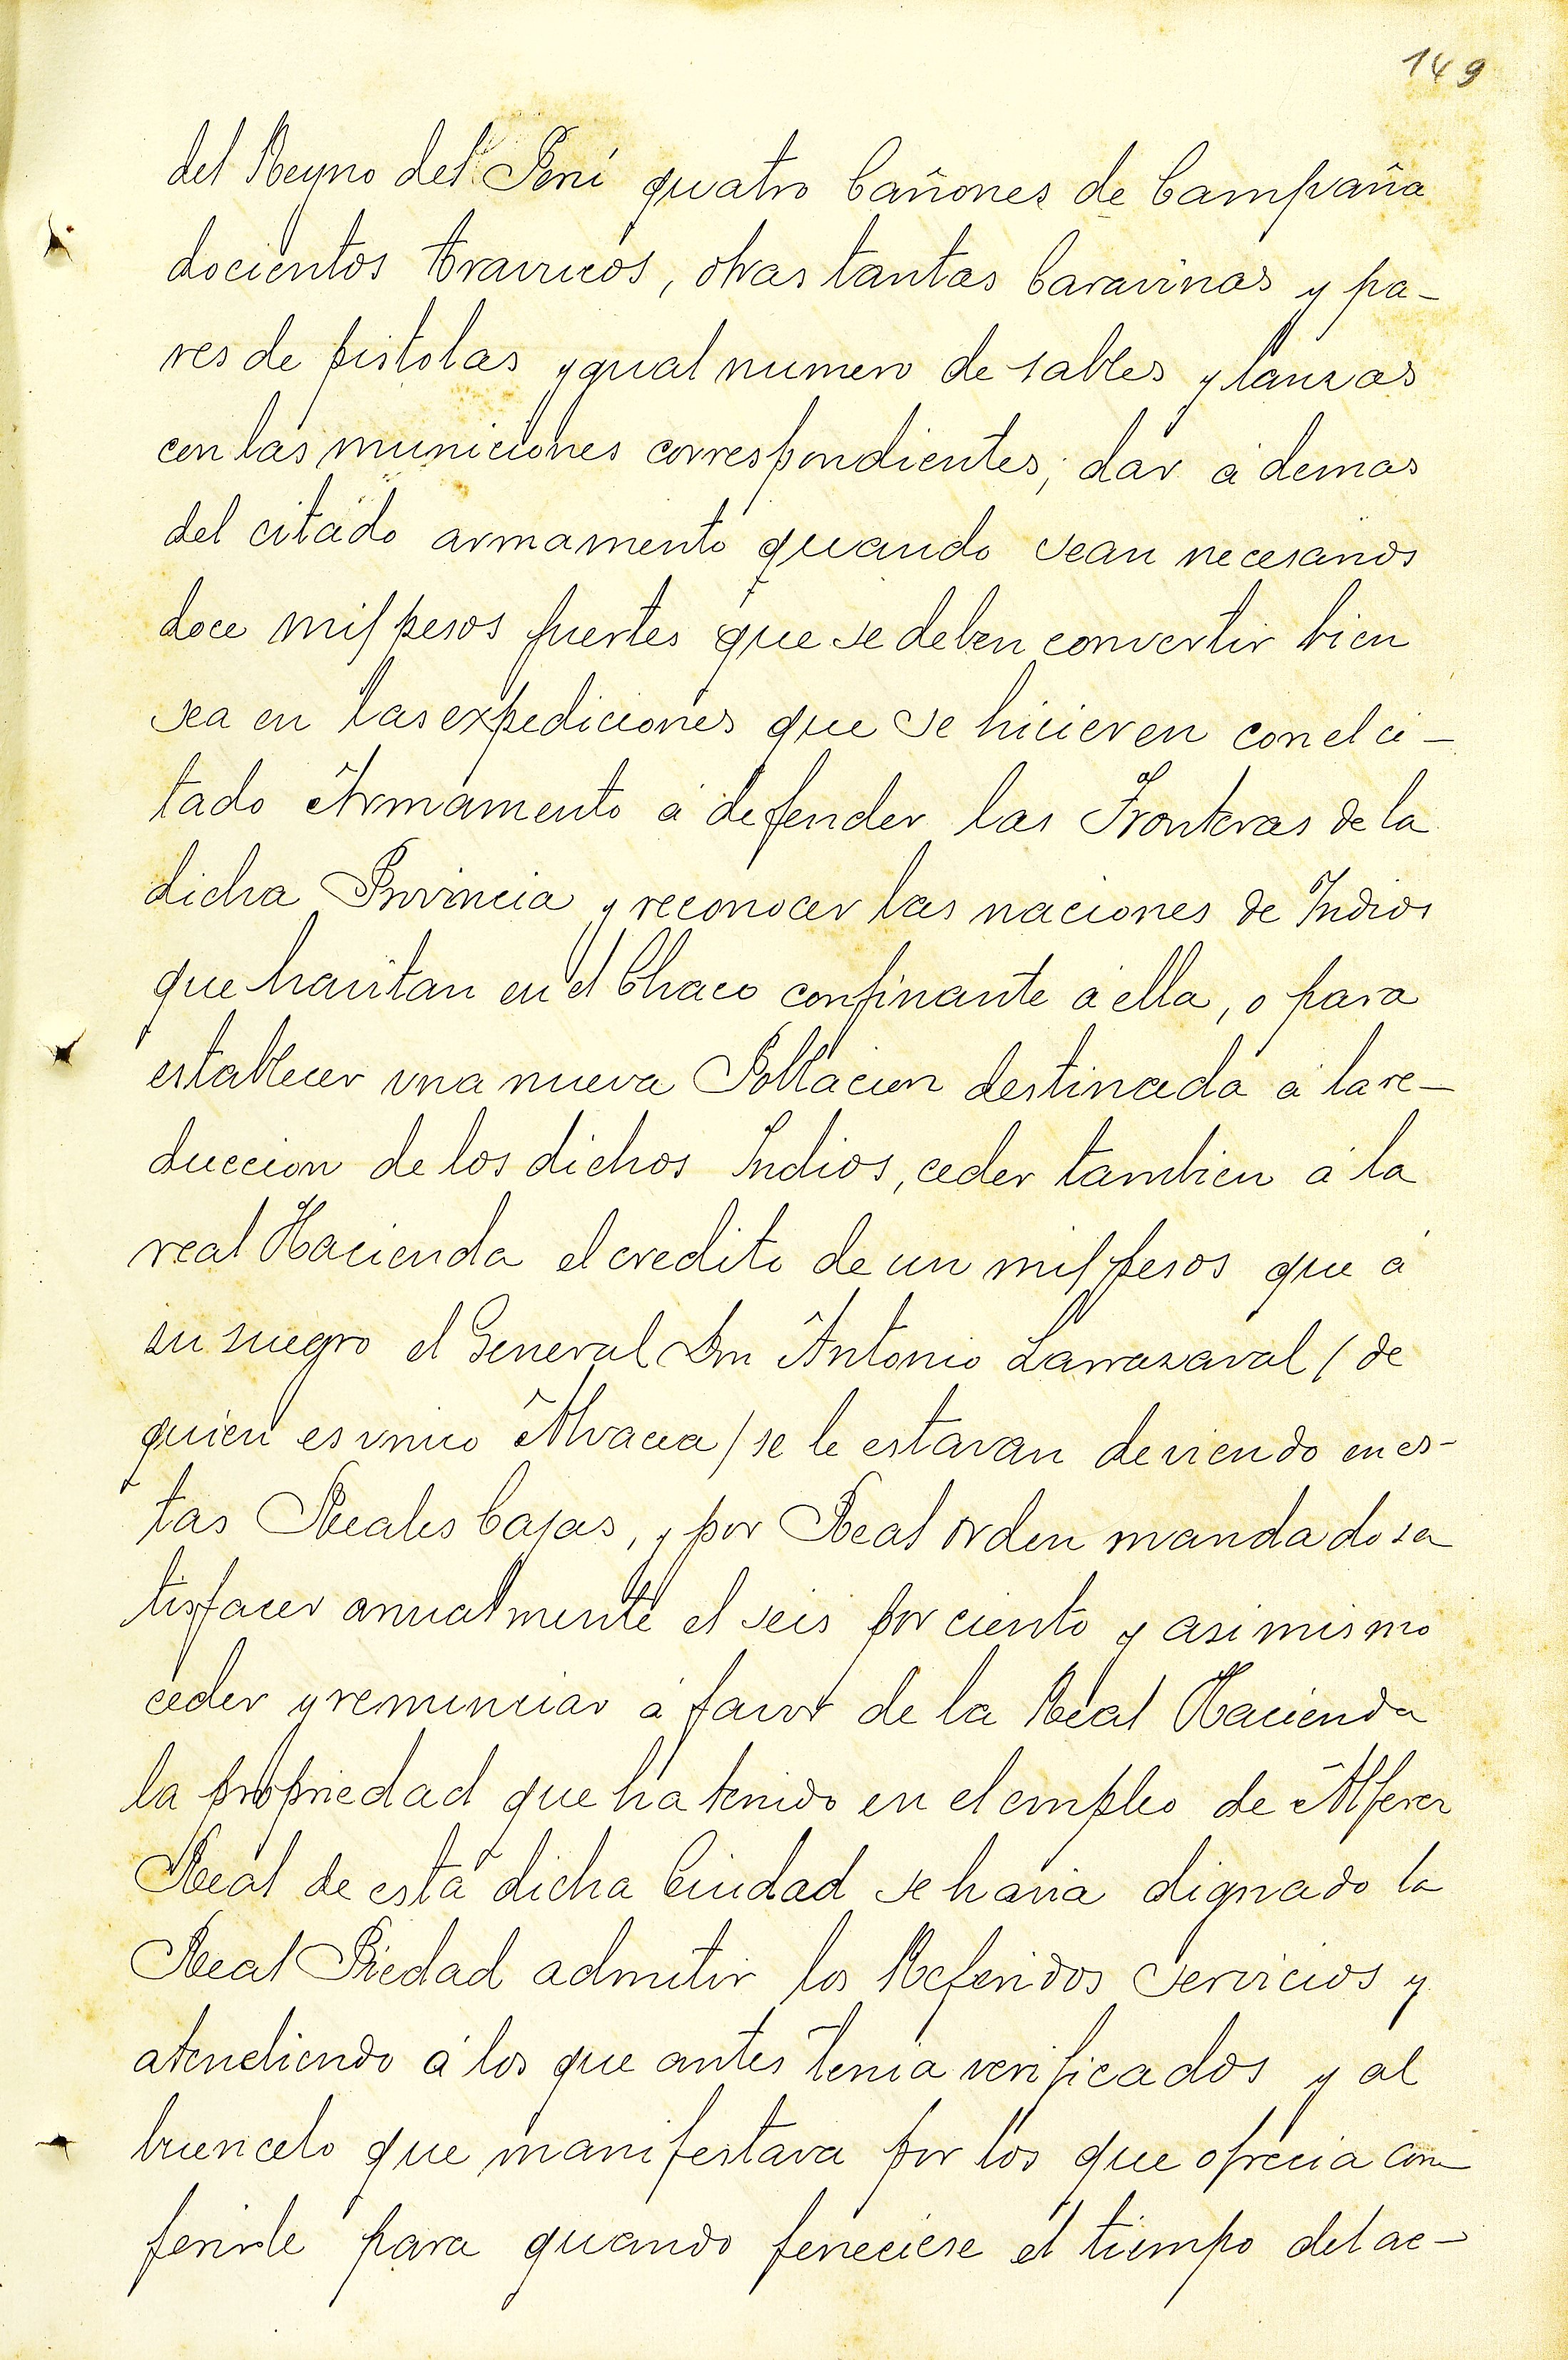 149
del Reyno del Perú quatro Cañones de Campaña
docientos travucos, otras tantas Caravinas y pa-
res de pistolas ygual numero de sables y lanzas
con las municiones correspondientes, dar ádemas
del citado armamento quando sean necesarios
doce mil pesos fuertes que se deben convertir bien
sea en las expediciones que se hicieren con el ci-
tado Armamento á defender las Fronteras de la
dicha Provincia y reconocer las naciones de Indios
que havitan en el Chaco confinante á ella, o para
establecer vna nueva Poblacion destinada á la re-
duccion de los dichos Indios, ceder tambien á la
real Hacienda el credito de un mil pesos que á
su suegro el General Dn Antonio Larrazaval / de
quien es vnico Alvacea / se le estavan deviendo en es-
tas Reales Cajas, y por Real orden mandado sa
tisfacer anualmente el seis por ciento y asi mismo
ceder y renunciar á favor de la Real Hacienda
la propriedad que ha tenido en el empleo de Alferez
Real de esta dicha Ciudad se havia dignado la
Real Piedad admitir los Referidos servicios y
atendiendo á los que antes tenia verificados y al
buen celo que manifestava por los que ofrecia con-
ferirle para quando feneciese el tiempo del ac-